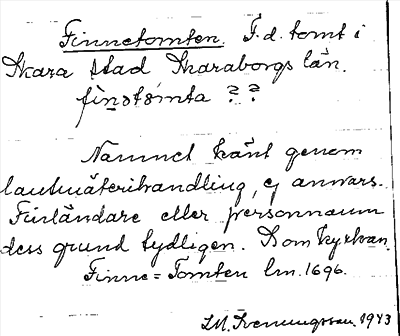 Finnetomten. F.d. tomt i
Skara stad Skaraborgs län.
finstömta ? ?
Namnet känt genom
lantmäterihandling, ej annars.
Finländare eller personnamn
dess grund tydligen. Som kyrkvan.
Finne = Tomten lm. 1696.
I.M. Svenungsson. 1943